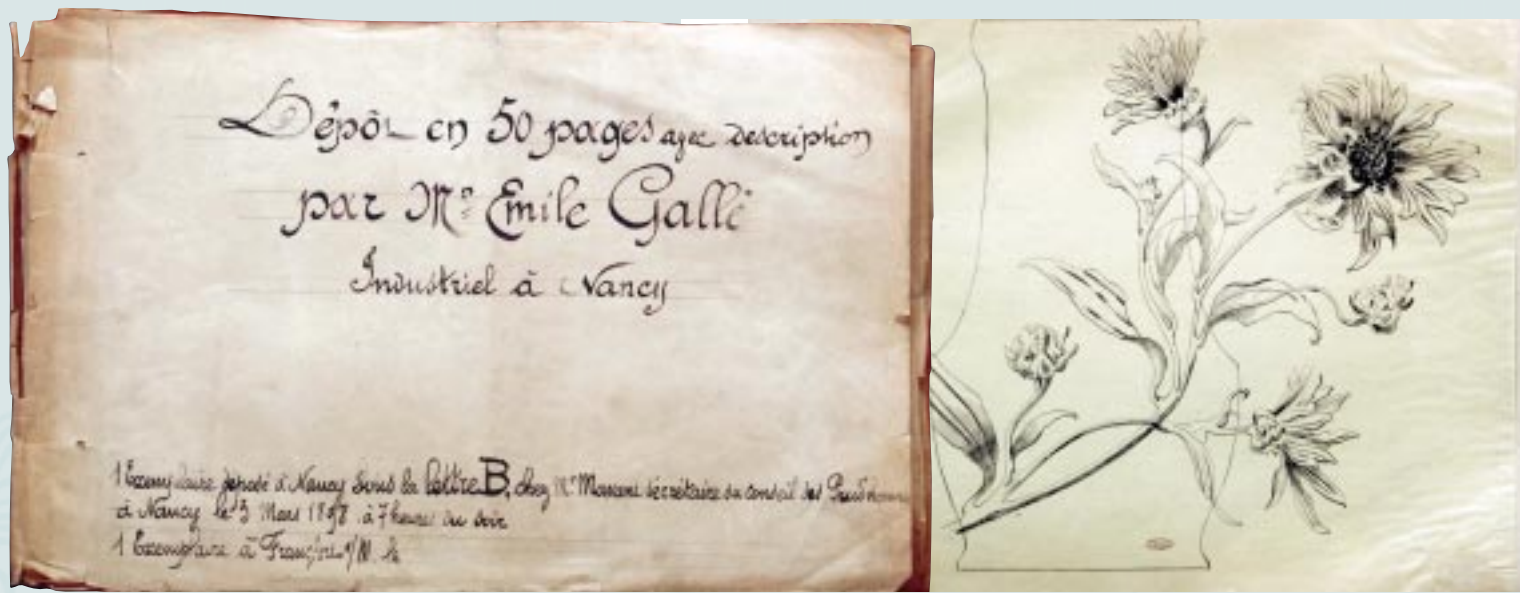 Dépôt en 50 pages avec description
par Mr Emile Gallé
Industriel à Nancy
1 Exemplaire déposé à Nancy sous la lettre B, chez Mr secrétaire du conseil des Prud'hommes
à Nancy le 3 Mars 1898 à 7 heures du soir
1 Exemplaire à Francfort s/M. le